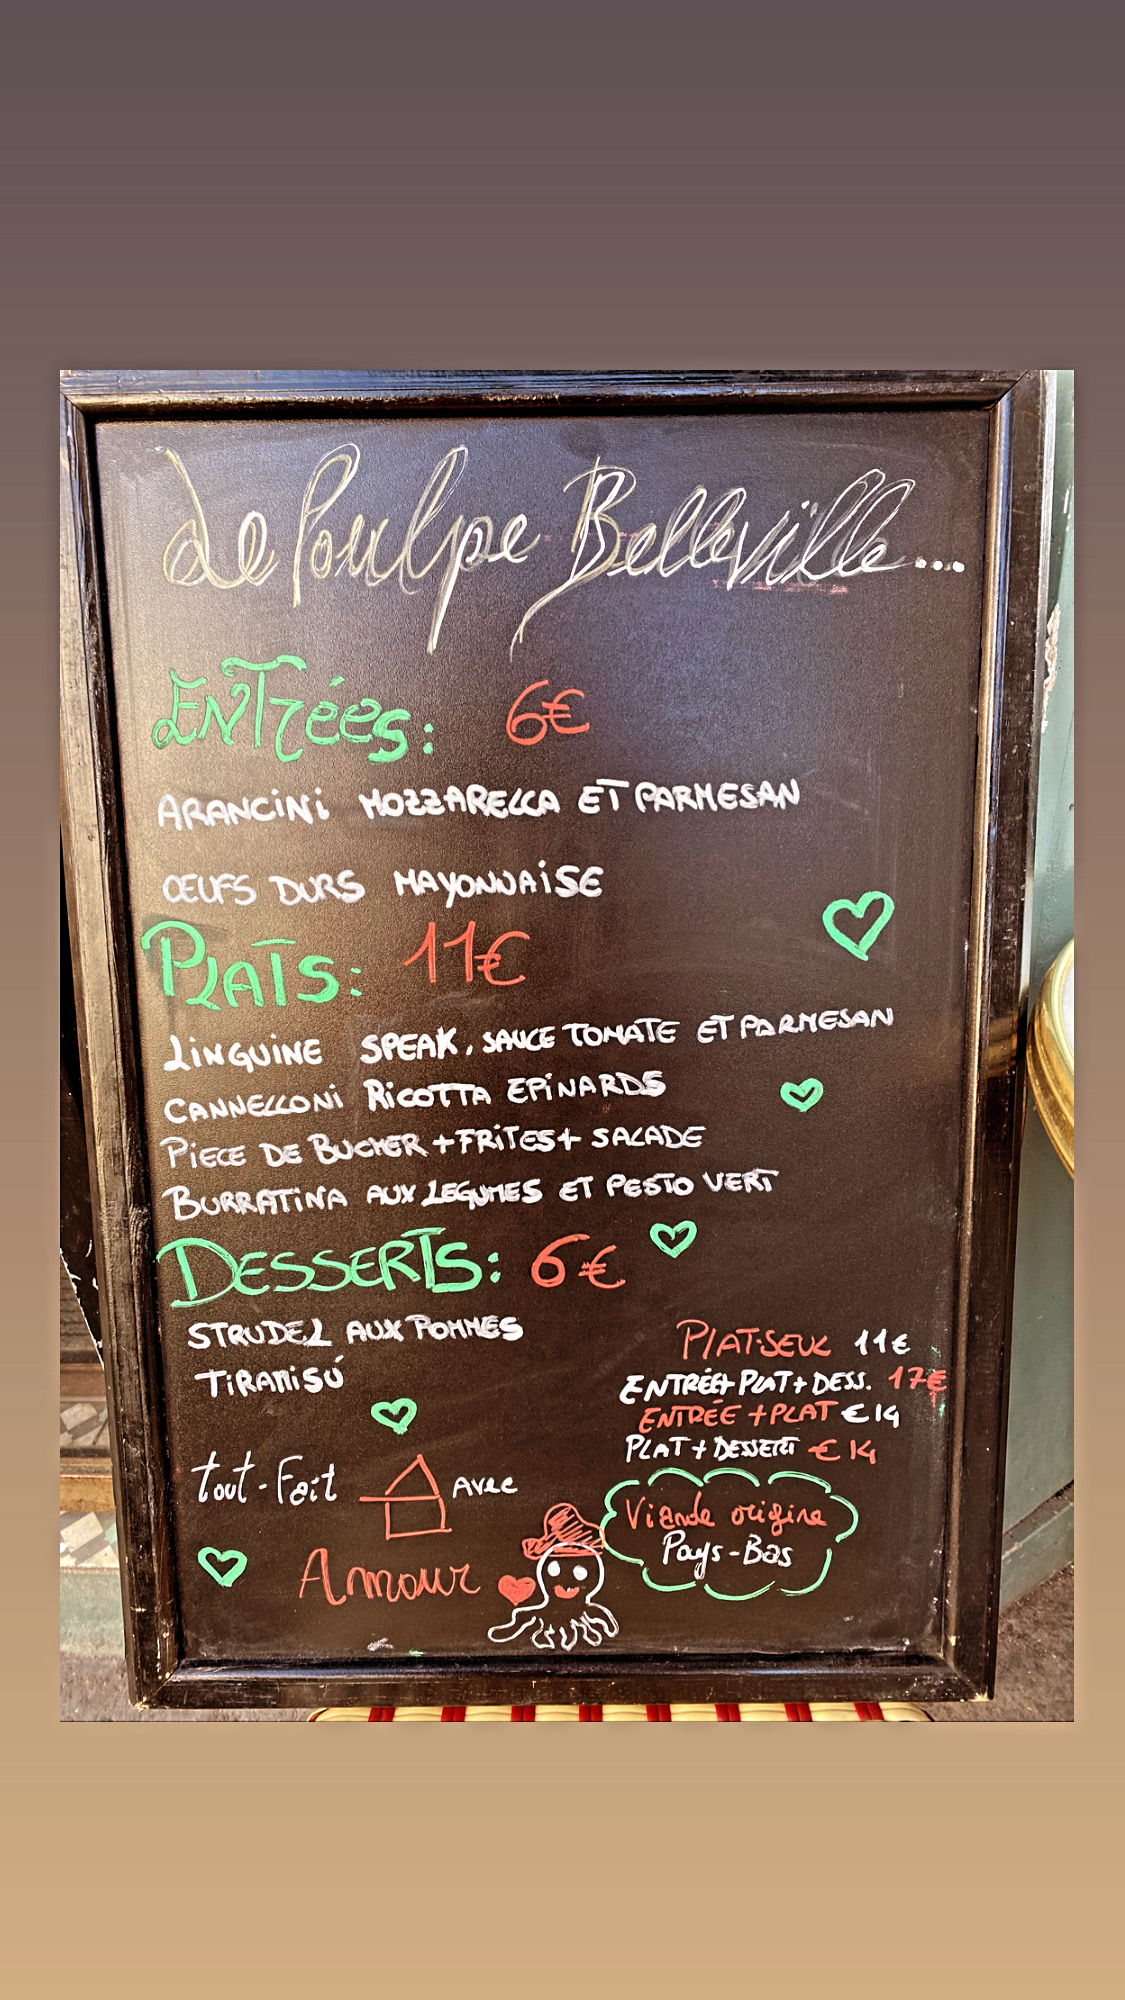 Le Poulpe Belleville...
ENTrées: 6€
ARANCINI MOZZARELLA ET PARMESAN
ŒUFS DURS MAYONNAISE
PLATS: 11€
LINGUINE SPEAK, SAUCE TOMATE ET PARMESAN
CANNELLONI RICOTTA EPINARDS
PIECE DE BUCHER + FRITES + SALADE
BURRATINA AUX LEGUMES ET PESTO VERT
DESSERTS: 6€
STRUDEL AUX POMMES
TIRAMISÚ
PLAT SEUL 11€
ENTRÉE+ PLAT + DESS. 17€
ENTRÉE + PLAT €14
PLAT + DESSERT €14
tout-Fait AVEC
Amour
Viande origine
Pays-Bas